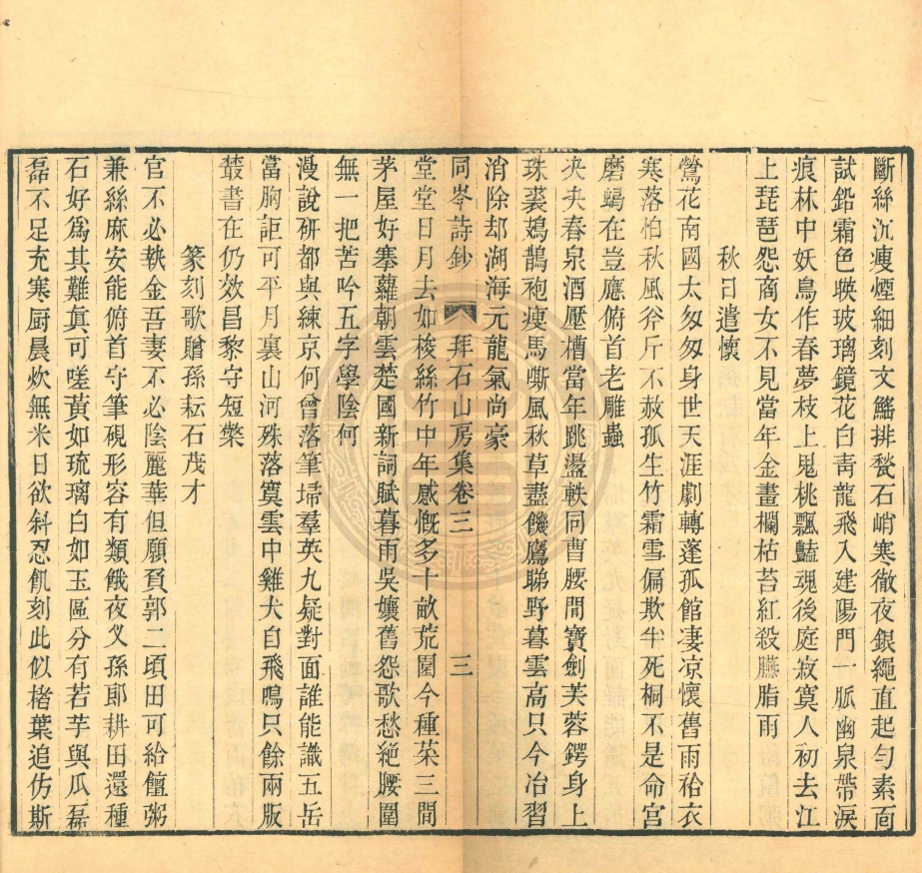 斷絲沉瘦煙細刻文鱕排甃石峭寒徹夜銀繩直起勻素面
試鉛霜色暎玻璃鏡花白靑龍飛入建陽門一脈幽泉帶淚
痕林中妖鳥作春夢枝上鬼桃飄豔魂後庭寂寞人初去江
上琵琶怨商女不見當年金畫欄枯苔紅殺臙脂雨
秋日遣懷
鶯花南國太匆匆身世天涯劇轉蓬孤館凄凉懷舊雨袷衣
寒落怕秋風斧斤不赦孤生竹霜雪偏欺半死桐不是命宮
磨蝎在豈應俯首老雕蟲
央央春泉酒壓槽當年跳盪軼同曹腰間寶劍芙蓉鍔身上
珠裘鵕鸃袍瘦馬嘶風秋草盡饑鷹睇野暮雲高只今冶習
消除却湖海元龍氣尚豪
同岑詩鈔 拜石山房集卷三 三
堂堂日月去如梭絲竹中年感慨多十畝荒園今種菜三間
茅屋好搴蘿朝雲楚國新詞賦暮雨吳孃舊怨歌愁絶腰圍
無一把苦吟五字學陰何
漫說硏都與練京何曾落筆埽羣英九疑對面誰能識五岳
當胸詎可平月裏山河殊落寞雲中雞犬自飛鳴只餘兩版
叢書在仍效昌黎守短檠
篆刻歌贈孫耘石茂才
官不必執金吾妻不必陰麗華但願負郭二頃田可給饘粥
兼絲麻安能俯首守筆硯形容有類餓夜叉孫郎耕田還種
石好爲其難眞可嗟黃如琉璃白如玉區分有若芋與瓜磊
磊不足充寒厨晨炊無米日欲斜忍飢刻此似楮葉追仿斯